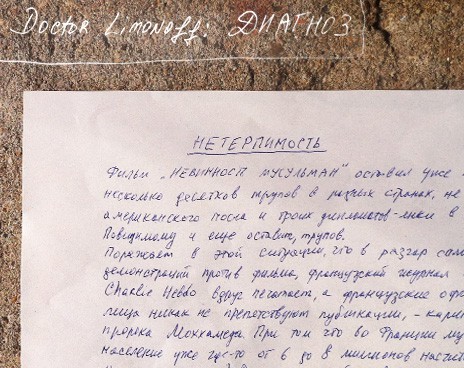 Doctor Limonoff: ДИАГНОЗ
НЕТЕРПИМОСТЬ
Фильм „НЕВИННОСТЬ МУСУЛЬМАН" оставил уже
несколько десятков трупов в разных странах, не
американского посла и троих дипломатов- в
Повидимому и еще оставит, трупов.
Поражает в этой ситуации, что в разгар сам
демонстраций против фильма, французский журнал
Charlie Hebdo вдруг печатает, а французские оф
лица никак не препятствуют публикации, - кари
пророка Мохамеда. При том что во Франции му
население уже где-то от 6 до 8 миллионов насчит